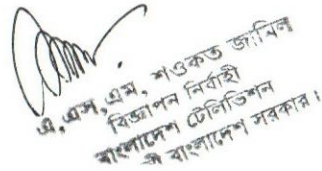 এ, এস, এম, শওকত জামিল
বিজ্ঞাপন নির্বাহী
বাংলাদেশ টেলিভিশন
বাংলাদেশ সরকার।